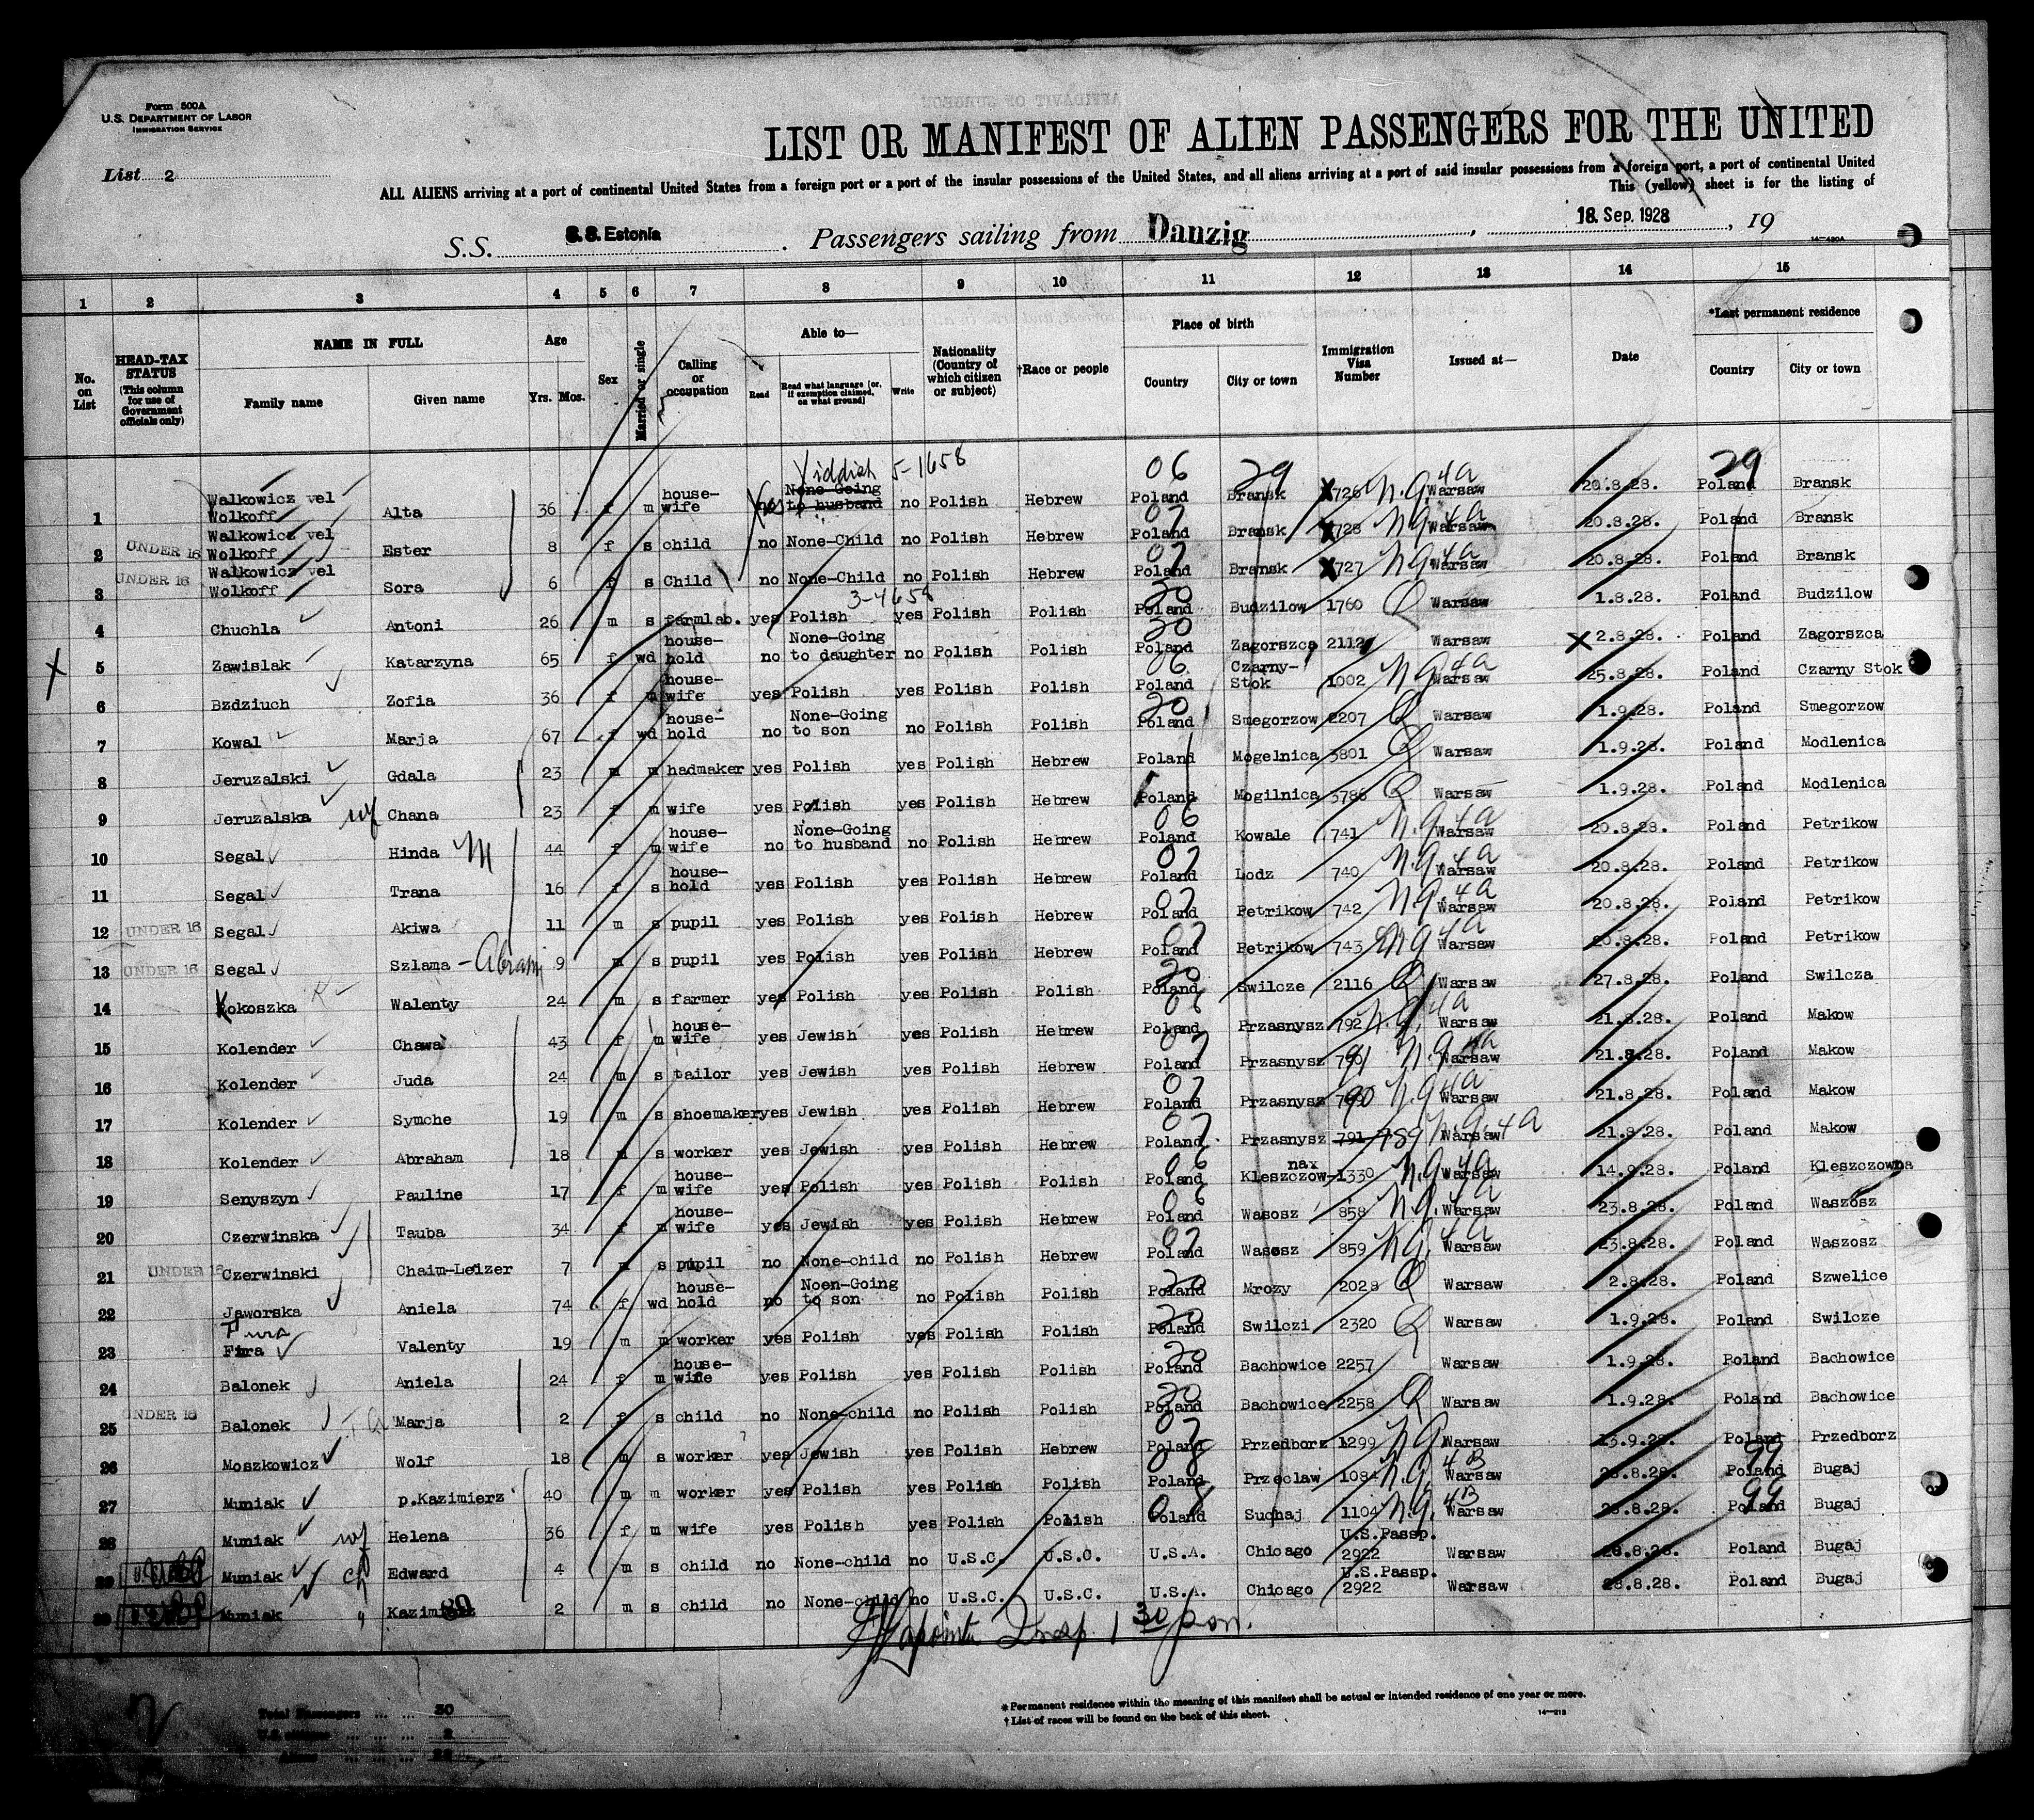 Form 500A
U.S. DEPARTMENT OF LABOR
IMMIGRATION SERVICE
List 2
LIST OR MANIFEST OF ALIEN PASSENGERS FOR THE UNITED
ALL ALIENS arriving at a port of continental United States from a foreign port or a port of the insular possessions of the United States, and all aliens arriving at a port of said insular possessions from a foreign port, a port of continental United
This (yellow) sheet is for the listing of
S.S. S.S. Estonia. Passengers sailing from Danzig, 18. Sep. 1928, 19
14—430A
1 2 3 4 5 6 7 8 9 10 11 12 13 14 15
No. on List
HEAD-TAX STATUS (This column for use of Government officials only)
NAME IN FULL
Family name Given name
Age
Yrs. Mos.
Sex
Married or single
Calling or occupation
Able to—
Read Read what language [or, if exemption claimed, on what ground] Write
Nationality (Country of which citizen or subject)
†Race or people
Place of birth
Country City or town
Immigration Visa Number
Issued at—
Date
*Last permanent residence
Country City or town
Yiddish 5-1658 06 29 29
1 Walkowicz vel Wolkoff Alta 36 f m house-wife no None-Going to husband no Polish Hebrew Poland Bransk 726 N.Q. 4a Warsaw 20.8.28. Poland Bransk
2 UNDER 16 Walkowicz vel Wolkoff Ester 8 f s child no None-Child no Polish Hebrew 07 Poland Bransk 728 N.Q. 4a Warsaw 20.8.28. Poland Bransk
3 UNDER 16 Walkowicz vel Wolkoff Sora 6 f s Child no None-Child no Polish Hebrew 07 Poland Bransk 727 N.Q. 4a Warsaw 20.8.28. Poland Bransk
3-4658
4 Chuchla Antoni 26 m s farmlab. yes Polish yes Polish Polish 20 Poland Budzilow 1760 Q Warsaw 1.8.28. Poland Budzilow
X 5 Zawislak Katarzyna 65 f wd house-hold no None-Going to daughter no Polish Polish 20 Poland Zagorszca 2112 Warsaw X 2.8.28. Poland Zagorszca
6 Bzdziuch Zofia 36 f m house-wife yes Polish yes Polish Polish 06 Poland Czarny-Stok 1002 N.Q. 4a Warsaw 25.8.28. Poland Czarny Stok
7 Kowal Marja 67 f wd house-hold no None-Going to son no Polish Polish 20 Poland Smegorzow 2207 Q Warsaw 1.9.28. Poland Smegorzow
8 Jeruzalski Gdala 23 m m hadmaker yes Polish yes Polish Hebrew Poland Mogelnica 3801 Q Warsaw 1.9.28. Poland Modlenica
9 Jeruzalska wf Chana 23 f m wife yes Polish yes Polish Hebrew Poland Mogilnica 3786 Q Warsaw 1.9.28. Poland Modlenica
10 Segal Hinda M 44 f m house-wife no None-Going to husband no Polish Hebrew 06 Poland Kowale 741 N.Q. 4a Warsaw 20.8.28. Poland Petrikow
11 Segal Trana 16 f s house-hold yes Polish yes Polish Hebrew 07 Poland Lodz 740 N.Q. 4a Warsaw 20.8.28. Poland Petrikow
12 UNDER 16 Segal Akiwa 11 m s pupil yes Polish yes Polish Hebrew 07 Poland Petrikow 742 N.Q. 4a Warsaw 20.8.28. Poland Petrikow
13 UNDER 16 Segal Szlama - Abram 9 m s pupil yes Polish yes Polish Hebrew 07 Poland Petrikow 743 N.Q. 4a Warsaw 20.8.28. Poland Petrikow
14 Kokoszka K Walenty 24 m s farmer yes Polish yes Polish Polish 20 Poland Swilcze 2116 Q Warsaw 27.8.28. Poland Swilcza
15 Kolender Chawa 43 f m house-wife yes Jewish yes Polish Hebrew 06 Poland Przasnysz 792 N.Q. 4a Warsaw 21.8.28. Poland Makow
16 Kolender Juda 24 m s tailor yes Jewish yes Polish Hebrew 07 Poland Przasnysz 791 N.Q. 4a Warsaw 21.8.28. Poland Makow
17 Kolender Symche 19 m s shoemaker yes Jewish yes Polish Hebrew 07 Poland Przasnysz 790 N.Q. 4a Warsaw 21.8.28. Poland Makow
18 Kolender Abraham 18 m s worker yes Jewish yes Polish Hebrew 07 Poland Przasnysz 791 789 N.Q. 4a Warsaw 21.8.28. Poland Makow
19 Senyszyn Pauline 17 f m house-wife yes Polish yes Polish Polish 06 Poland Kleszczow-nax 1330 N.Q. 4a Warsaw 14.9.28. Poland Kleszczowna
20 Czerwinska Tauba 34 f m house-wife yes Jewish yes Polish Hebrew 06 Poland Wasosz 858 N.Q. 4a Warsaw 23.8.28. Poland Waszosz
21 UNDER 16 Czerwinski Chaim-Leizer 7 m s pupil no None-child no Polish Hebrew 07 Poland Wasosz 859 N.Q. 4a Warsaw 23.8.28. Poland Waszosz
22 Jaworska Aniela 74 f wd house-hold no Noen-Going to son no Polish Polish 20 Poland Mrozy 2028 Q Warsaw 2.8.28. Poland Szwelice
23 Pura Fura Valenty 19 m m worker yes Polish yes Polish Polish 20 Poland Swilczi 2320 Q Warsaw 1.9.28. Poland Swilcze
24 Balonek Aniela 24 f m house-wife yes Polish yes Polish Polish 20 Poland Bachowice 2257 Warsaw 1.9.28. Poland Bachowice
25 UNDER 16 Balonek Marja 2 f s child no None-child no Polish Polish 20 Poland Bachowice 2258 Q Warsaw 1.9.28. Poland Bachowice
26 Moszkowicz Wolf 18 m s worker yes Jewish yes Polish Hebrew 07 Poland Przedborz 1299 N.Q. Warsaw 13.9.28. Poland Przedborz
27 Muniak p.Kazimierz 40 m m worker yes Polish yes Polish Polish 08 Poland Przeclaw 1084 N.Q. 4B Warsaw 28.8.28. 99 Poland Bugaj
28 Muniak wf Helena 36 f m wife yes Polish yes Polish Polish 08 Poland Suchaj 1104 N.Q. 4B Warsaw 28.8.28. 99 Poland Bugaj
29 Muniak ch Edward 4 m s child no None-child no U.S.C. U.S.C. U.S.A. Chicago U.S.Passp. 2922 Warsaw 28.8.28. Poland Bugaj
30 Muniak " 2 m s child no None-child no U.S.C. U.S.C. U.S.A. Chicago U.S.Passp. 2922 Warsaw 28.8.28. Poland Bugaj
Insp. 1 30 pm.
2
Total Passengers ... ... 30
U.S. citizens ... ... 2
Aliens ... ... 28
*Permanent residence within the meaning of this manifest shall be actual or intended residence of one year or more.
†List of races will be found on the back of this sheet.
14—213